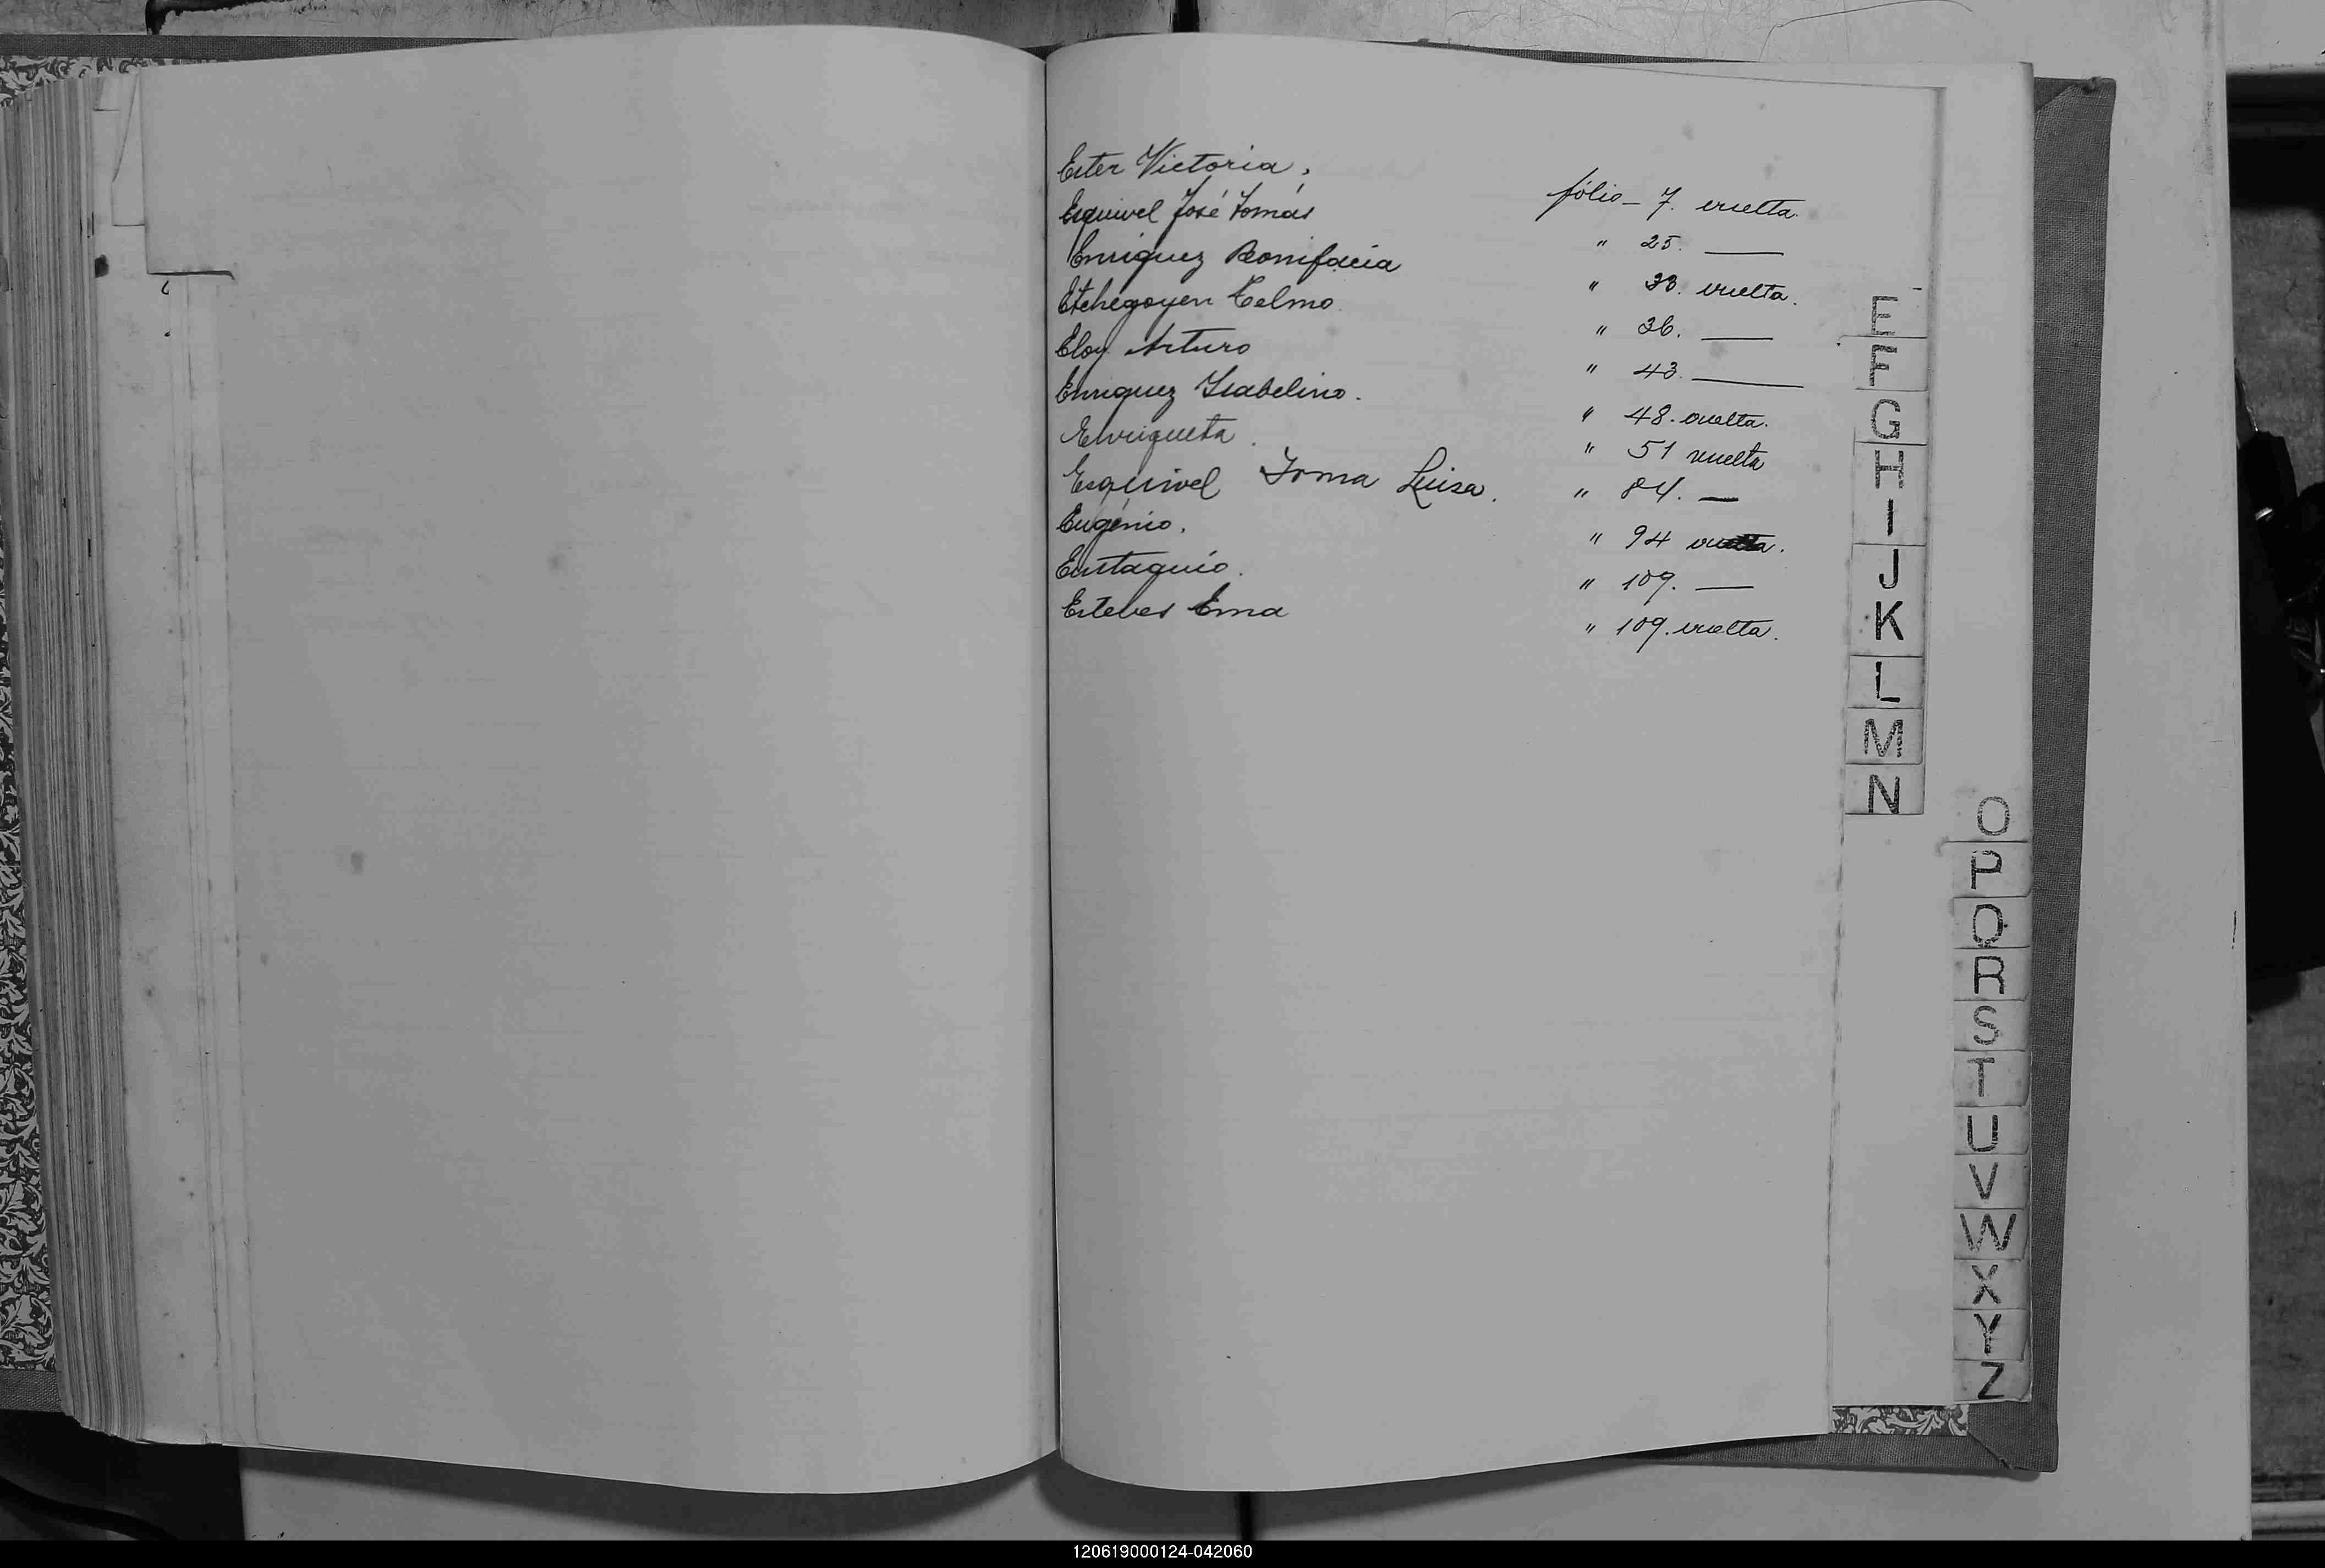 Ester Victoria. fólio - 7. vuelta.
Esquivel José Tomás " 25. —
Enriquez Bonifacia " 33. vuelta.
Etchegoyen Telmo. " 36. —
Eloy Arturo " 43. —
Enriquez Isabelino. " 48. vuelta.
Enriqueta. " 51 vuelta
Esquivel Irma Luisa. " 84. —
Eugénio. " 94 vuelta.
Eustaquio. " 109. —
Esteves Ema " 109. vuelta.
E
F
G
H
I
J
K
L
M
N
O
P
Q
R
S
T
U
V
W
X
Y
Z
120619000124-042060